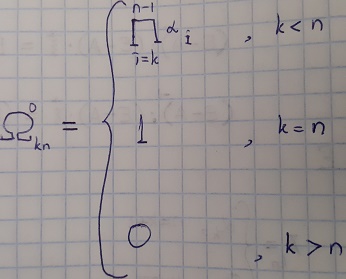 Ω⁰ₖₙ = { ∏ᵢ₌ₖⁿ⁻¹ αᵢ , k < n
1 , k = n
0 , k > n